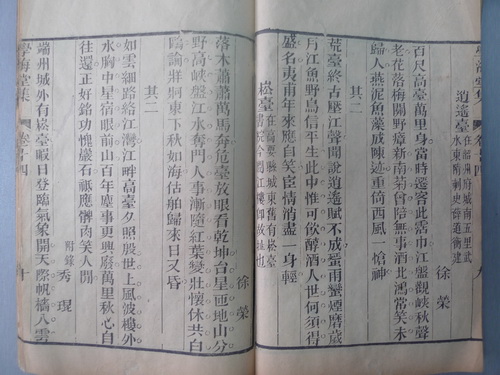 逍遙臺 在臨府城南五里武
水東隋刺史薛道衡建
徐榮
百尺高臺萬里身當時遷客此霑巾江盤觀峽秋聲
老花落梅關野瘴新南菊曾陪無事酒北鴻常笑未
歸人燕泥魚藻成陳迹重倚西風一愴神
其二
荒臺終古壓江聲聞說逍遙賦不成蜑雨蠻煙磨歲
月江魚野鳥信平生此中惟可飲醇酒人世何須得
盛名夷甫年來應自笑宦情消盡一身輕
崧臺 在高要縣城東舊有崧臺
書院今閱江樓卽故址也
徐榮
落木蕭蕭萬馬奔危臺放眼看乾坤台星匝地山分
野高峽盤江水奪門人事漸隨紅葉變壯懷休共白
鷗論牂牁東下秋如海估舶歸來日又昏
其二
如雲細路終江灣江畔高臺夕照殷世上風波樓外
水胸中星宿眼前山百年事興廢萬里秋心自
往還正好銘功愧巖石祗應髀肉笑人閒
附錄 秀琨
端州城外有崧臺暇日登臨氣象開天際帆檣入雲
學海堂集 卷十四 十